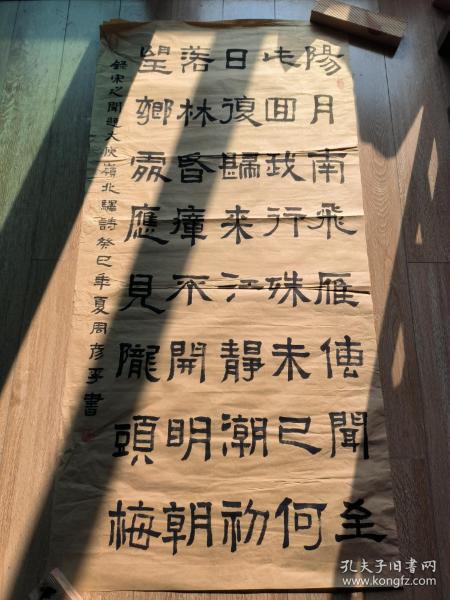 陽月南飛雁傳聞至
此回我行殊未已何
日復歸来江靜潮初
落林昏瘴不開明朝
望鄉處應見隴頭梅
錄宋之問題大庾嶺北驛詩癸巳年夏周彦書
孔夫子旧书网
www.kongfz.com